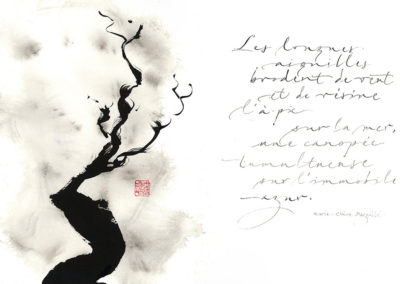 Les longues
aiguilles
brodent de vent
et de résine
l'à pic
sur la mer,
une canopée
tumultueuse
sur l'immobile
azur.
Marie-Claire